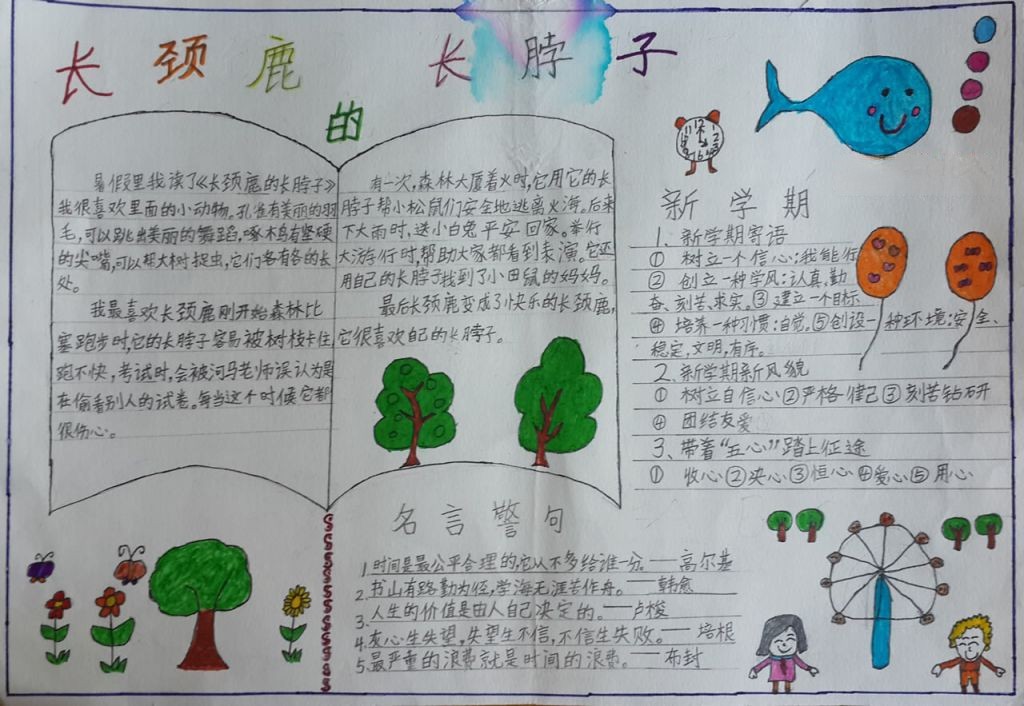 长颈鹿的长脖子
暑假里我读了《长颈鹿的长脖子》
我很喜欢里面的小动物。孔雀有美丽的羽
毛，可以跳出美丽的舞蹈，啄木鸟有坚硬
的尖嘴，可以帮大树捉虫，它们各有各的长
处。
我最喜欢长颈鹿刚开始森林比
赛跑步时，它的长脖子容易被树枝卡住，
跑不快，考试时，会被河马老师误认为是
在偷看别人的试卷。每当这个时候它都
很伤心。
有一次，森林大厦着火时，它用它的长
脖子帮小松鼠们安全地逃离火海。后来
下大雨时，送小白兔平安回家。举行
大游行时，帮助大家都看到表演。它还
用自己的长脖子找到了小田鼠的妈妈。
最后长颈鹿变成了快乐的长颈鹿，
它很喜欢自己的长脖子。
新学期
1、新学期寄语
① 树立一个信心：我能行
② 创立一种学风：认真、勤
奋、刻苦、求实。③ 建立一个目标
④ 培养一种习惯：自觉。⑤创设一种环境：安全、
稳定，文明，有序。
2、新学期新风貌
① 树立自信心②严格律己③刻苦钻研
④ 团结友爱
3、带着“五心”踏上征途
① 收心②决心③恒心④爱心⑤用心
名言警句
1.时间是最公平合理的，它从不多给谁一分。——高尔基
2.书山有路勤为径，学海无涯苦作舟。——韩愈
3.人生的价值是由人自己决定的。——卢梭
4.灰心生失望，失望生不信，不信生失败。——培根
5.最严重的浪费就是时间的浪费。——布封